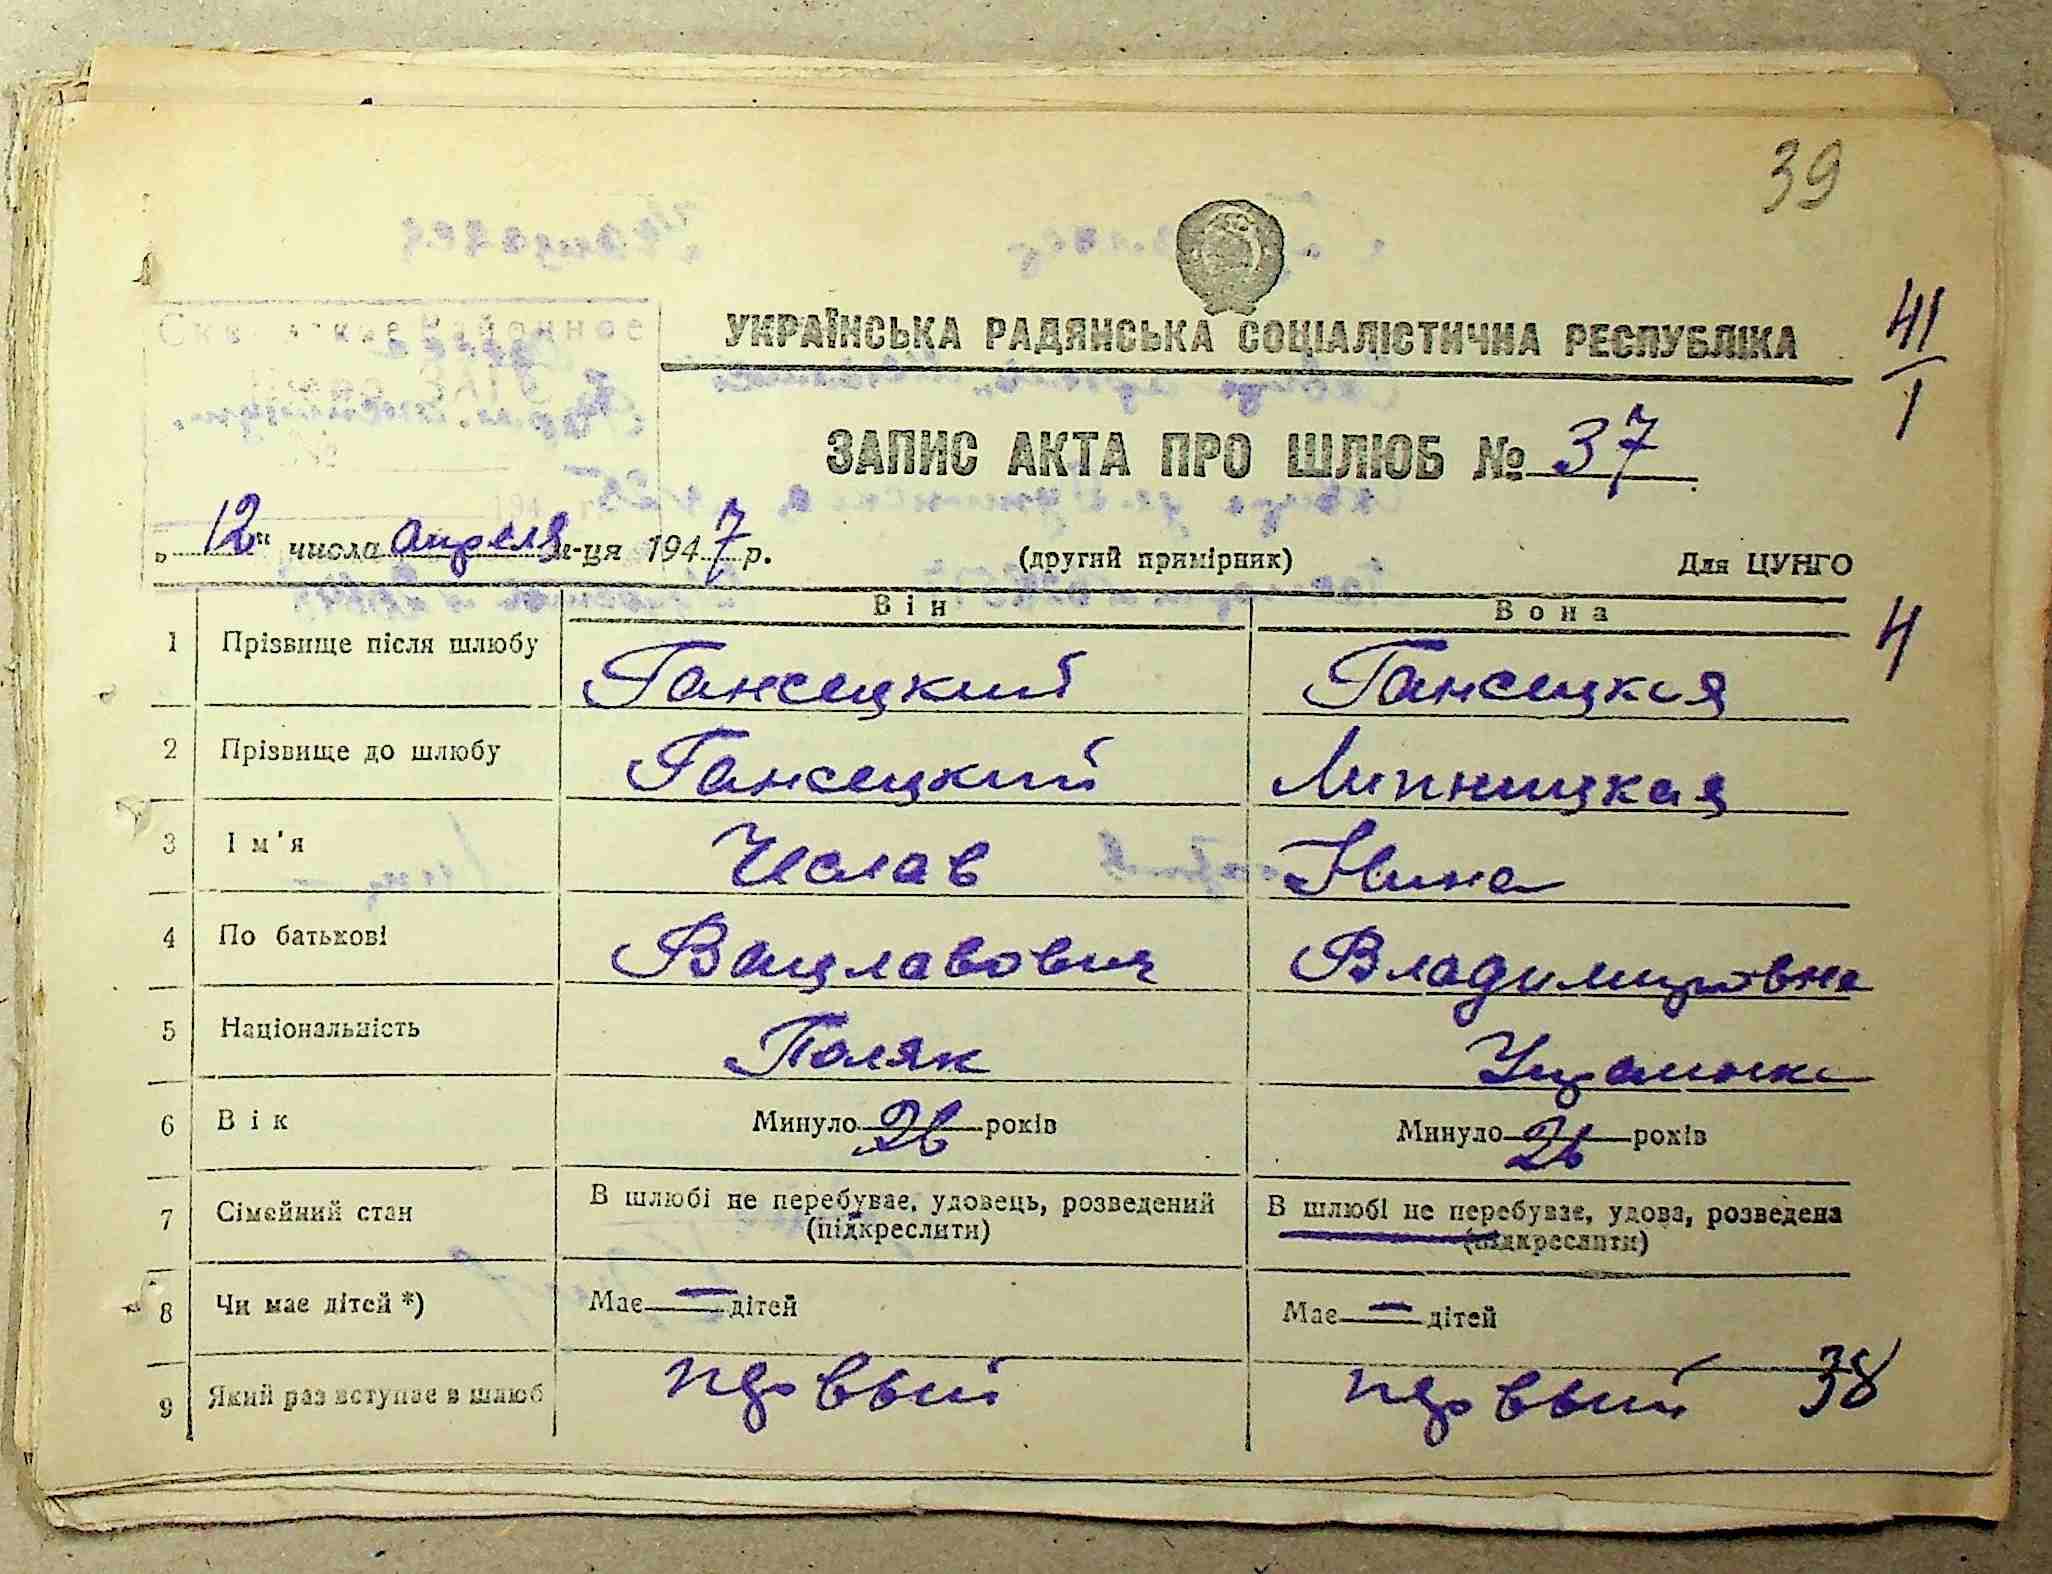 39
УКРАЇНСЬКА РАДЯНСЬКА СОЦІАЛІСТИЧНА РЕСПУБЛІКА
41/1
ЗАПИС АКТА ПРО ШЛЮБ № 37
„12“ числа апреля м-ця 1947 р. (другий примірник) Для ЦУНГО
Він Вона
1 Прізвище після шлюбу Гансецкий Гансецкая 4
2 Прізвище до шлюбу Гансецкий Липницкая
3 Ім'я Чеслав Нина
4 По батькові Вацлавович Владимировна
5 Національність Поляк Украинка
6 Вік Минуло 26 років Минуло 26 років
7 Сімейний стан В шлюбі не перебуває, удовець, розведений (підкреслити) В шлюбі не перебуває, удова, розведена (підкреслити)
8 Чи має дітей *) Має — дітей Має — дітей
9 Який раз вступає в шлюб первый первый 38